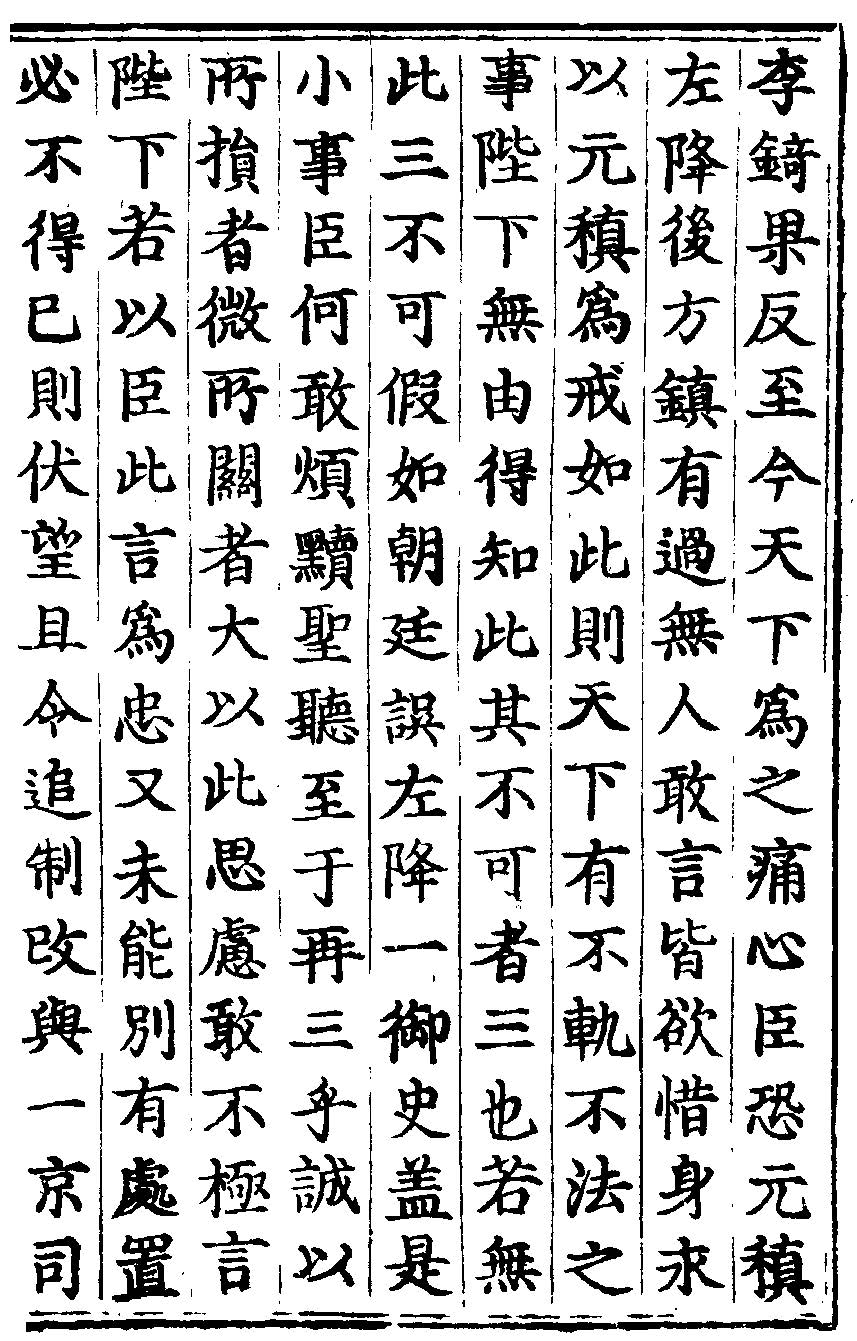 李錡果反至今天下爲之痛心臣恐元稹
左降後方鎮有過無人敢言皆欲惜身求
以元稹爲戒如此則天下有不軌不法之
事陛下無由得知此其不可者三也若無
此三不可假如朝廷誤左降一御史盖是
小事臣何敢煩黷聖聽至于再三乎誠以
所損者微所關者大以此思慮敢不極言
陛下若以臣此言爲忠又未能別有處置
必不得已則伏望且令追制改與一京司